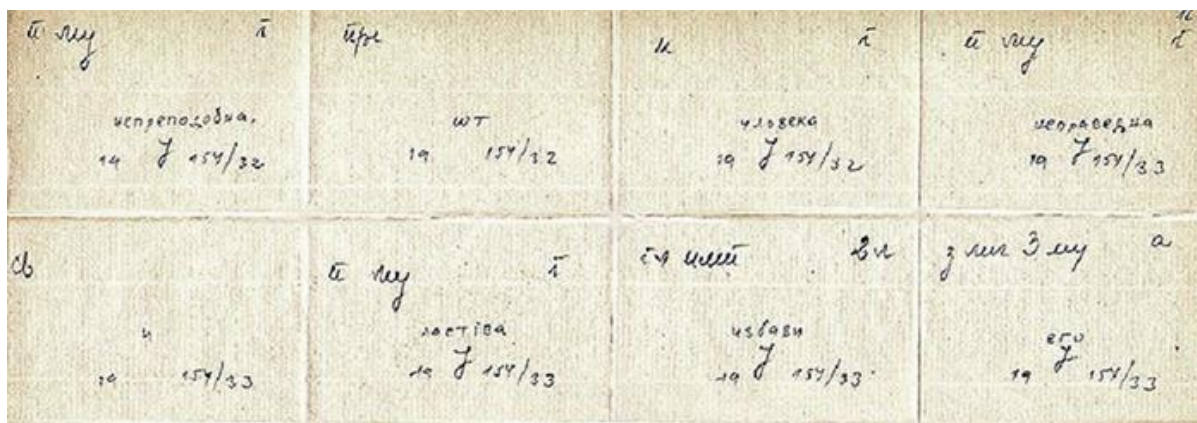 п му г
непреподобна.
19 у 154/32
пре
шт
19 154/32
и г
чловека
19 у 154/32
п му г
неправедна
19 у 154/33
св
и
19 154/33
п му г
ластіва
19 у 154/33
2л
избави
19 у 154/33
3 му а
его
19 у 154/33